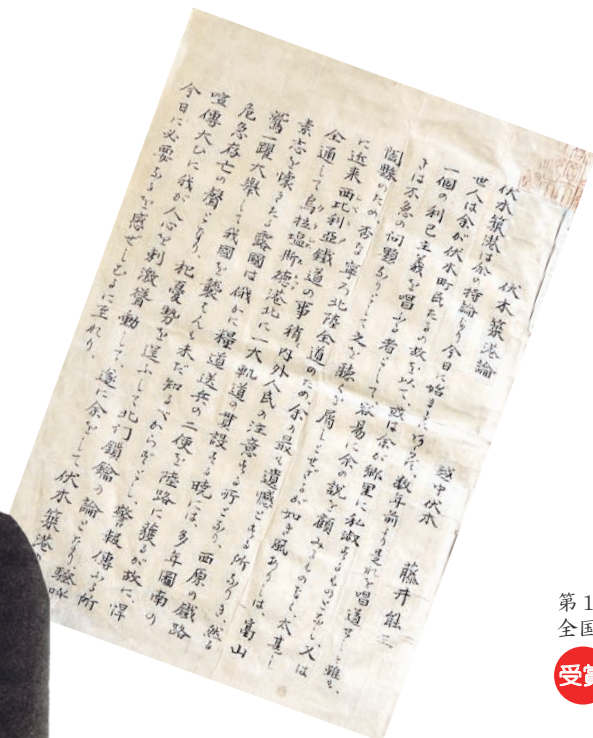 伏木築港論
越中伏木 藤井能三
伏木築港は余の持論なり今日に始まるに非らず、数年前より是れを唱道すと雖も、
世人は余が伏木町民たるの故を以て、或は余が郷里に私淑あるものと為し、又は
一個の利己主義を唱ふる者として、容易に余の説を顧みるものなく、太甚し
きは不急の問題なりとして之を聴くを屑しとせざるが如き風ありしは富山
縣のため否な寧ろ北陸全道のため余の最も遺憾とする所なりき、然る
に近来西比利亜鐵道の事稍内外人民の注意する所となり、西原の鐵路
全通して烏拉塩斯徳港北に一大軌道の貫設ある暁には、多年圖南の
素志を懐きたる露國は俄かに糧道送兵の二便を陸路に獲るが故に、悍
鷲一躍大舉して我國を襲はんも未だ知るべからずとし、警報傳ふる所
危急存亡の聲となり、杞憂勢を逞ふして北門鎖鑰の論となり、騒
喧傳大ひに我が人心を刺激聳動して、遂に余をして伏木築港
今日に必要なるを感ぜしむるに至れり、
第1
全国
受賞